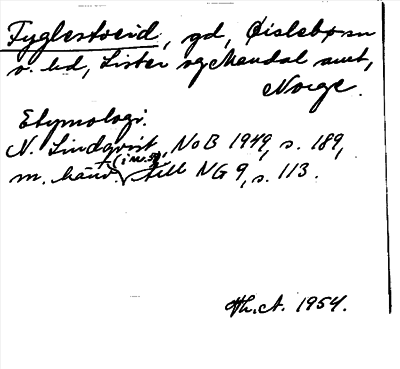 Fyglestveid, gd, Øislebø sn
v. hd, Lister og Mandal amt,
Norge.
Etymologi.
N. Lindqvist, NoB 1949, s. 189,
m. hänv. till NG 9, s. 113.
Hh. A. 1954.